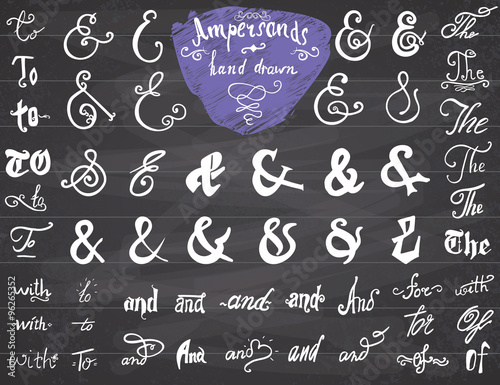 to & & Ampersands & & The
To hand drawn The
to & & & & The
TO & & & & & & & The
to The
To & & & & & & & The
with to and and and and And for with
with to for Of
with To and And and and and of Of